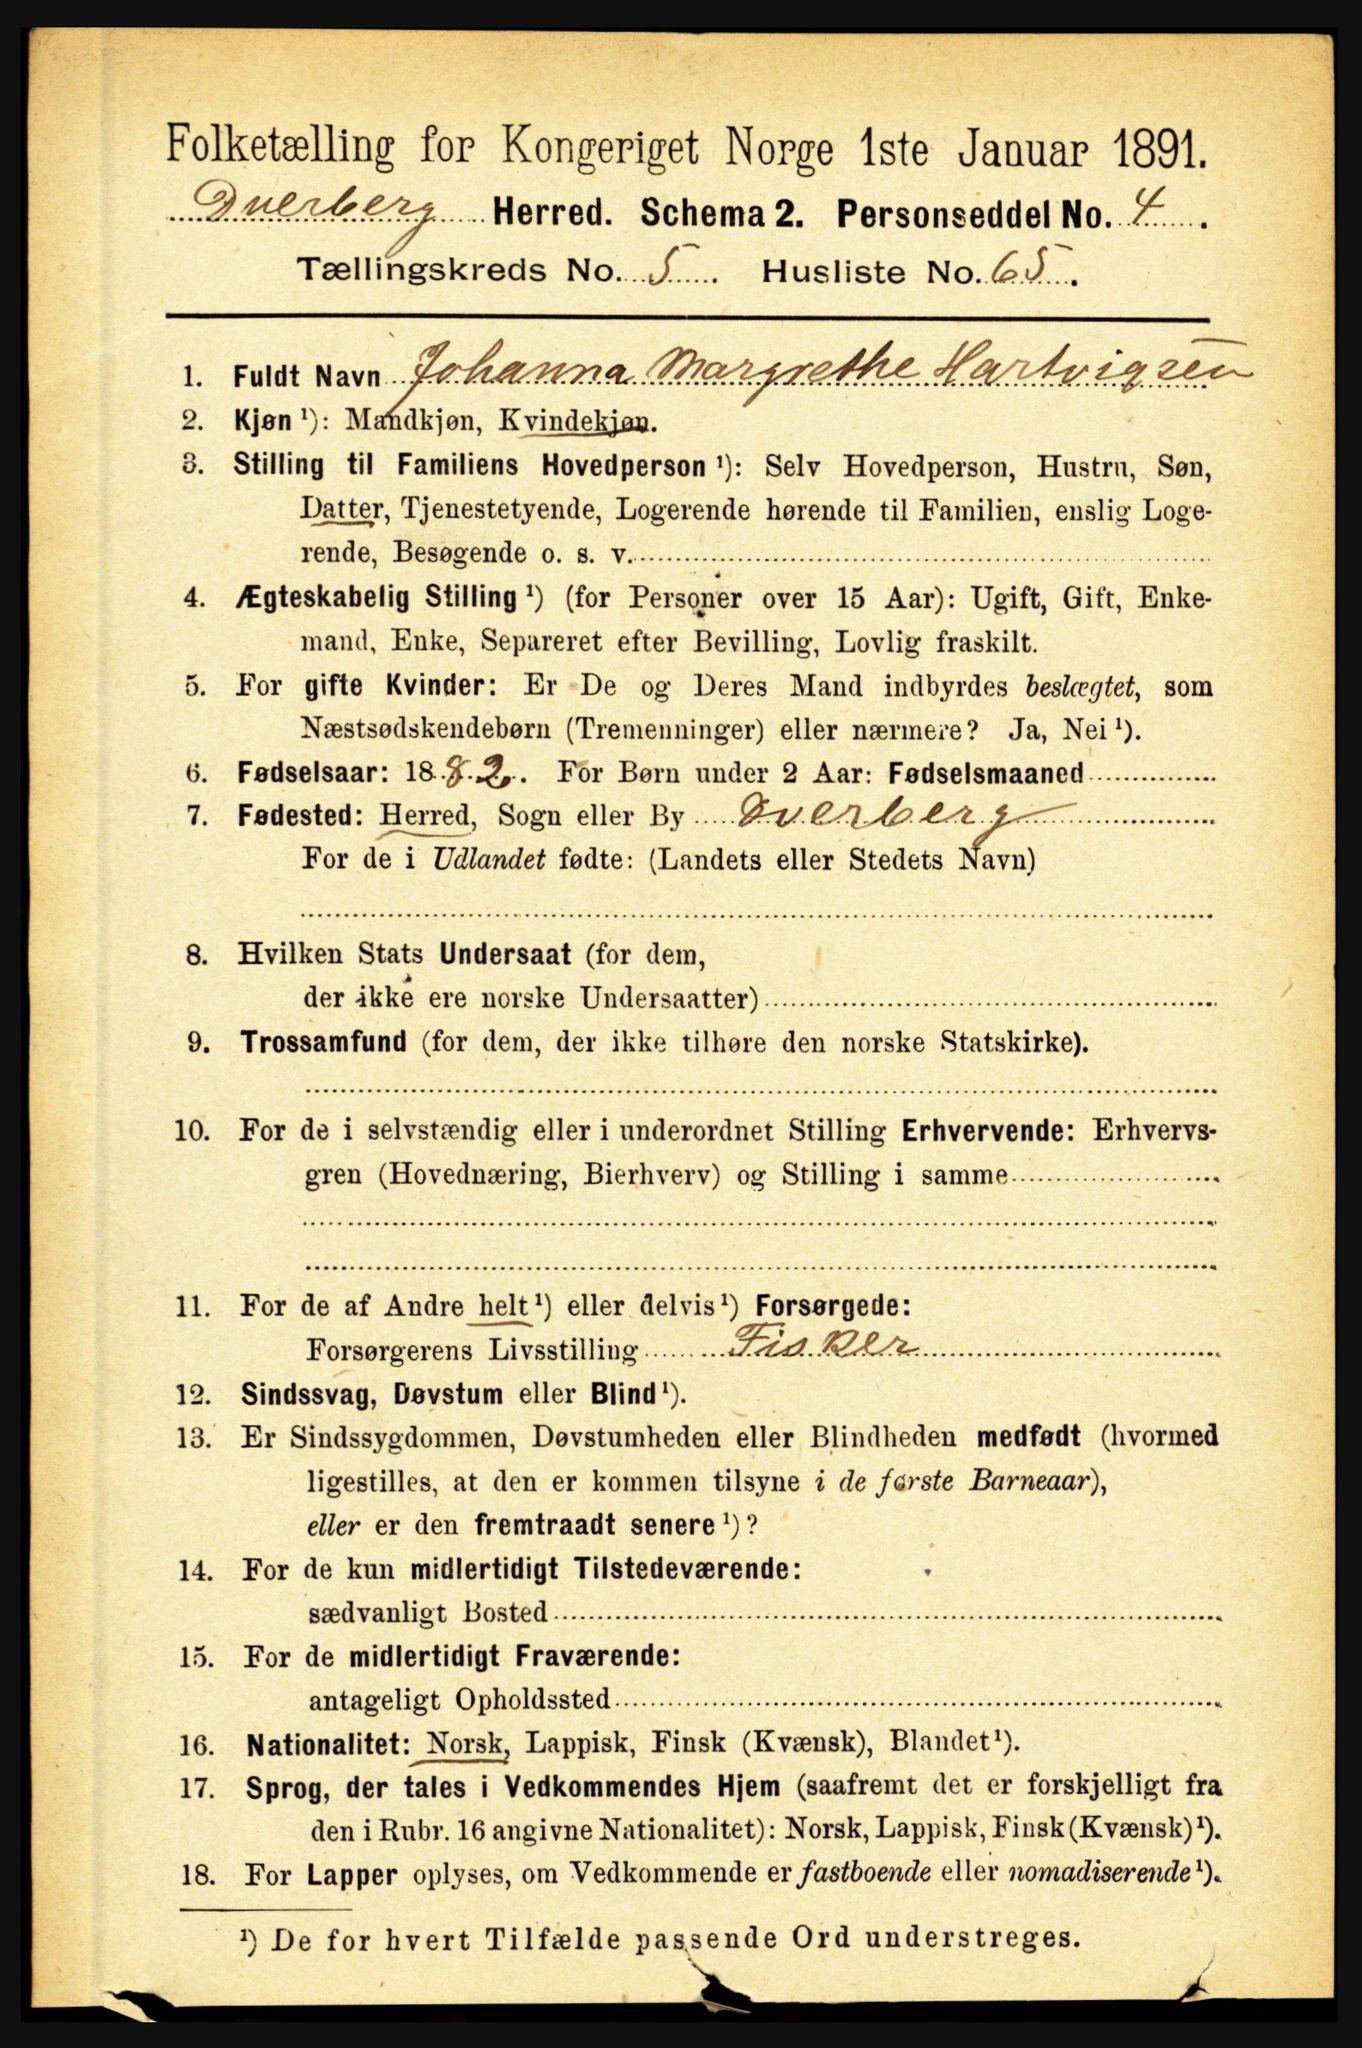 Folketælling for Kongeriget Norge 1ste Januar 1891.
Dverberg Herred. Schema 2. Personseddel No. 4.
Tællingskreds No. 5. Husliste No. 65.
1. Fuldt Navn Johanna Margrethe Hartvigsen
2. Kjøn ¹): Mandkjøn, Kvindekjøn.
3. Stilling til Familiens Hovedperson ¹): Selv Hovedperson, Hustru, Søn,
Datter, Tjenestetyende, Logerende hørende til Familien, enslig Loge-
rende, Besøgende o. s. v.
4. Ægteskabelig Stilling ¹) (for Personer over 15 Aar): Ugift, Gift, Enke-
mand, Enke, Separeret efter Bevilling, Lovlig fraskilt.
5. For gifte Kvinder: Er De og Deres Mand indbyrdes beslægtet, som
Næstsødskendebørn (Tremenninger) eller nærmere? Ja, Nei ¹).
6. Fødselsaar: 1882. For Børn under 2 Aar: Fødselsmaaned
7. Fødested: Herred, Sogn eller By Dverberg
For de i Udlandet fødte: (Landets eller Stedets Navn)
8. Hvilken Stats Undersaat (for dem,
der ikke ere norske Undersaatter)
9. Trossamfund (for dem, der ikke tilhøre den norske Statskirke).
10. For de i selvstændig eller i underordnet Stilling Erhvervende: Erhvervs-
gren (Hovednæring, Bierhverv) og Stilling i samme
11. For de af Andre helt ¹) eller delvis ¹) Forsørgede:
Forsørgerens Livsstilling Fisker
12. Sindssvag, Døvstum eller Blind ¹).
13. Er Sindssygdommen, Døvstumheden eller Blindheden medfødt (hvormed
ligestilles, at den er kommen tilsyne i de første Barneaar),
eller er den fremtraadt senere ¹)?
14. For de kun midlertidigt Tilstedeværende:
sædvanligt Bosted
15. For de midlertidigt Fraværende:
antageligt Opholdssted
16. Nationalitet: Norsk, Lappisk, Finsk (Kvænsk), Blandet ¹).
17. Sprog, der tales i Vedkommendes Hjem (saafremt det er forskjelligt fra
den i Rubr. 16 angivne Nationalitet): Norsk, Lappisk, Finsk (Kvænsk) ¹).
18. For Lapper oplyses, om Vedkommende er fastboende eller nomadiserende ¹).
¹) De for hvert Tilfælde passende Ord understreges.